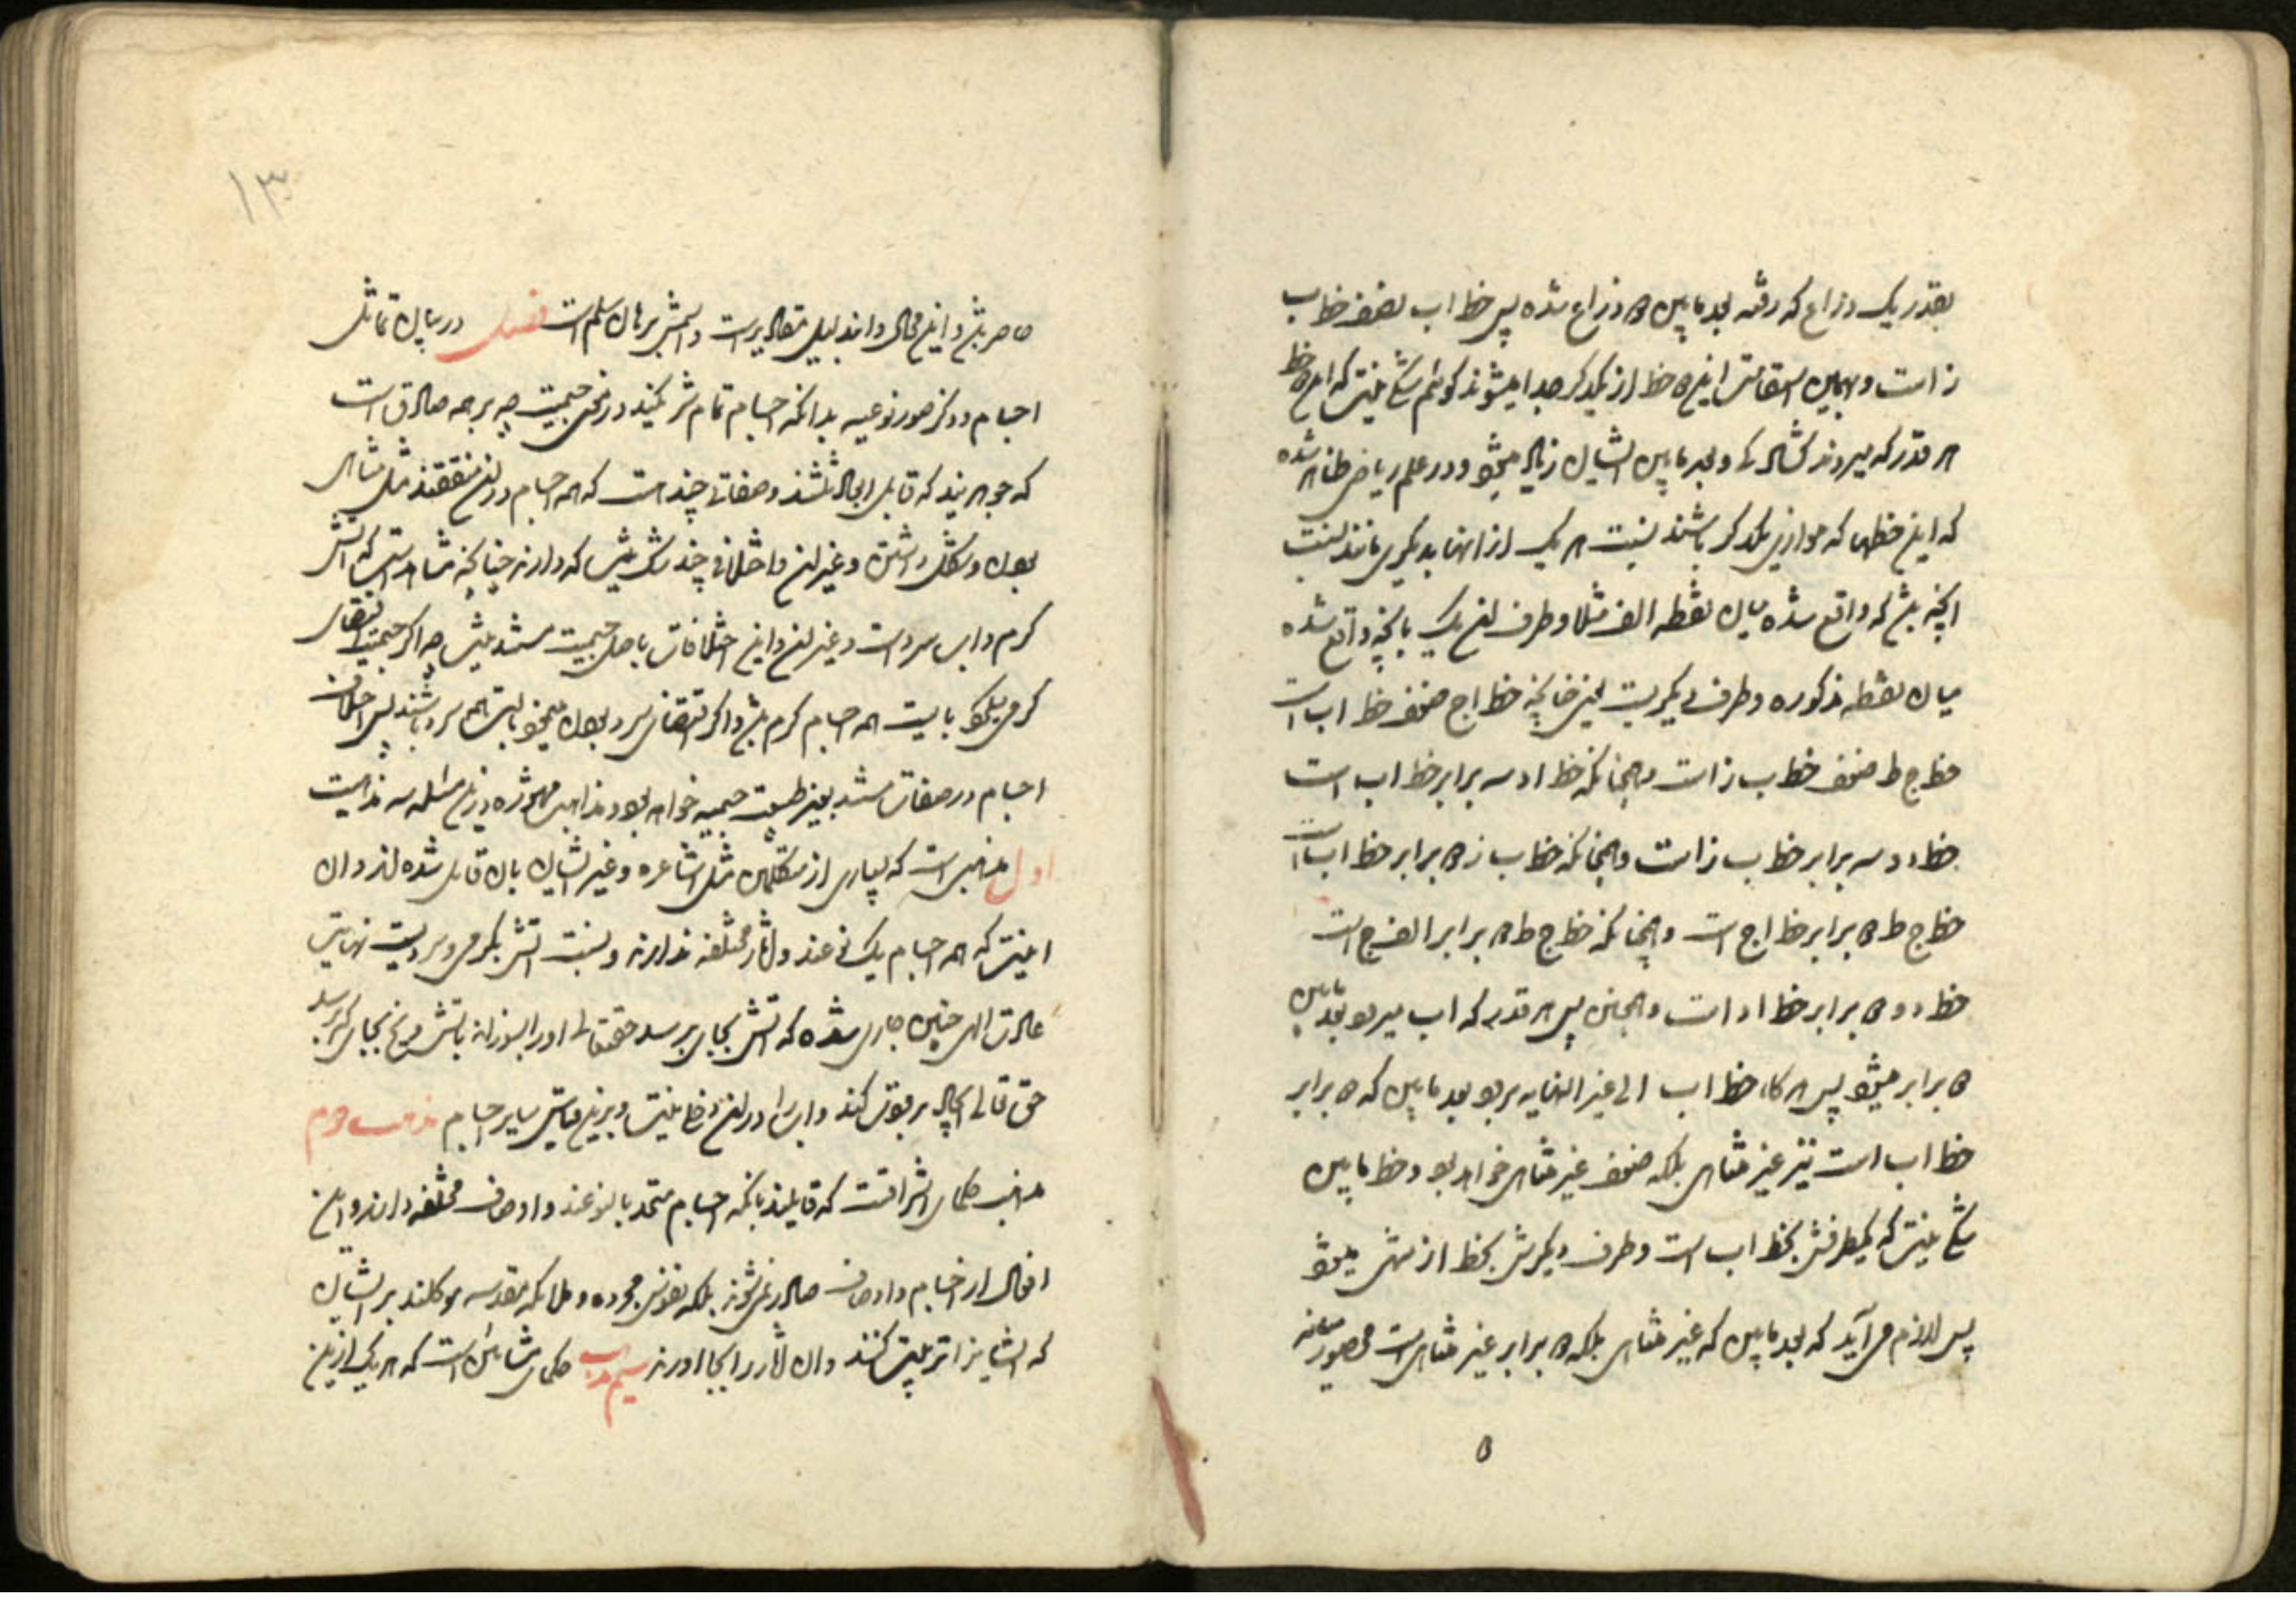 بقدر یک ذراع که رفته بعد مابین ه ذراع شده پس خط اب نصف خط ب
ز است و بهمین استقامت این ه خط از یکدیگر جدا میشوند گوئیم شک نیست که این ه خط
هر قدر که میروند گشاده و بعد مابین ایشان زیاده میشود و در علم ریاضی ظاهر شده
که این خطها که موازی یکدیگر باشند نسبت هر یک از انها بدیگری مانند نسبت
انچه واقع شده میان نقطه الف مثلا و طرف ان یک بانچه واقع شده
میان نقطه مذکوره و طرف دیگریست یعنی چنانچه خط اج ضعف خط اب است
خط ج ط ضعف خط ب ز است و همچنانکه خط اد سه برابر خط اب است
خط د سه برابر خط ب ز است و همچنانکه خط ب ز ه برابر خط اب است
خط ج ط ه برابر خط اج است و همچنانکه خط ج ط ه برابر الف ج است
خط د و ه برابر خط اد است و همچنین پس هر قدر که اب میرود بعد مابین
ه برابر میشود پس هرگاه خط اب الی غیر النهایه برود بعد مابین که ه برابر
خط اب است نیز غیر متناهی بلکه ضعف غیر متناهی خواهد بود و خط مابین
شک نیست که یکطرفش بخط اب است و طرف دیگرش بخط از منتهی میشود
پس لازم می آید که بعد مابین که غیر متناهی بلکه ه برابر غیر متناهی است محصور میانه
ه
۱۳
حاصر باشد و این محال و این دلیل متعالیه است و اسمش برهان سلم است فصل در بیان تماثل
اجسام و ذکر صور نوعیه بدانکه اجسام تمام شریکند در نحن جسمیت چه بر همه صادق است
که جوهریند که قابل ابعاد ثلثند و صفاتی چند است که همه اجسام در ان متفقند مثل متناهی
بودن و شکل داشتن و غیر ان و اختلافی چند که دارند چنانکه مشاهد است که اتش
گرم و اب سرد است و غیر ان و این اختلافات باصل جسمیت مستند نیست چه اگر جسمیت اقتضای
گرمی میکرد بایست همه اجسام گرم باشد و اگر اقتضای سرد بودن میکرد بایست همه سرد باشند پس اختلاف
اجسام در صفات مستند بغیر طبیعت جسمیه خواهد بود و مذاهب مشهوره در این مسئله سه مذهبست
اول مذهبی است که بسیاری از متکلمین مثل اشاعره و غیر ایشان بان قابل شده اند و ان
اینست که همه اجسام یک نوعند و اثار مختلفه ندارند و نسبت اتش بگرمی و سردیست نهایتش
عادت الهی چنین جاری شده که اتش بجای برسد حقتعالی او را بسوزاند باتش و یخ بجای که برسد
حق تعالی ایجاد برودت کند و اب را در ان دخلی نیست و بر این قیاس سایر اجسام مذهب دوم
مذهب حکمای اشراقست که قایلند بانکه اجسام متحد بالنوعند و اوصاف مختلفه دارند و این
افعال از اجسام و اوصاف صادر نمی شوند بلکه نفوس مجرده و ملائکه مقدسه موکلند بر ایشان
که ایشانرا تربیت کنند و ان اثار را بجا اورند سیم مذهب حکمای مشائین است که هر یک از این